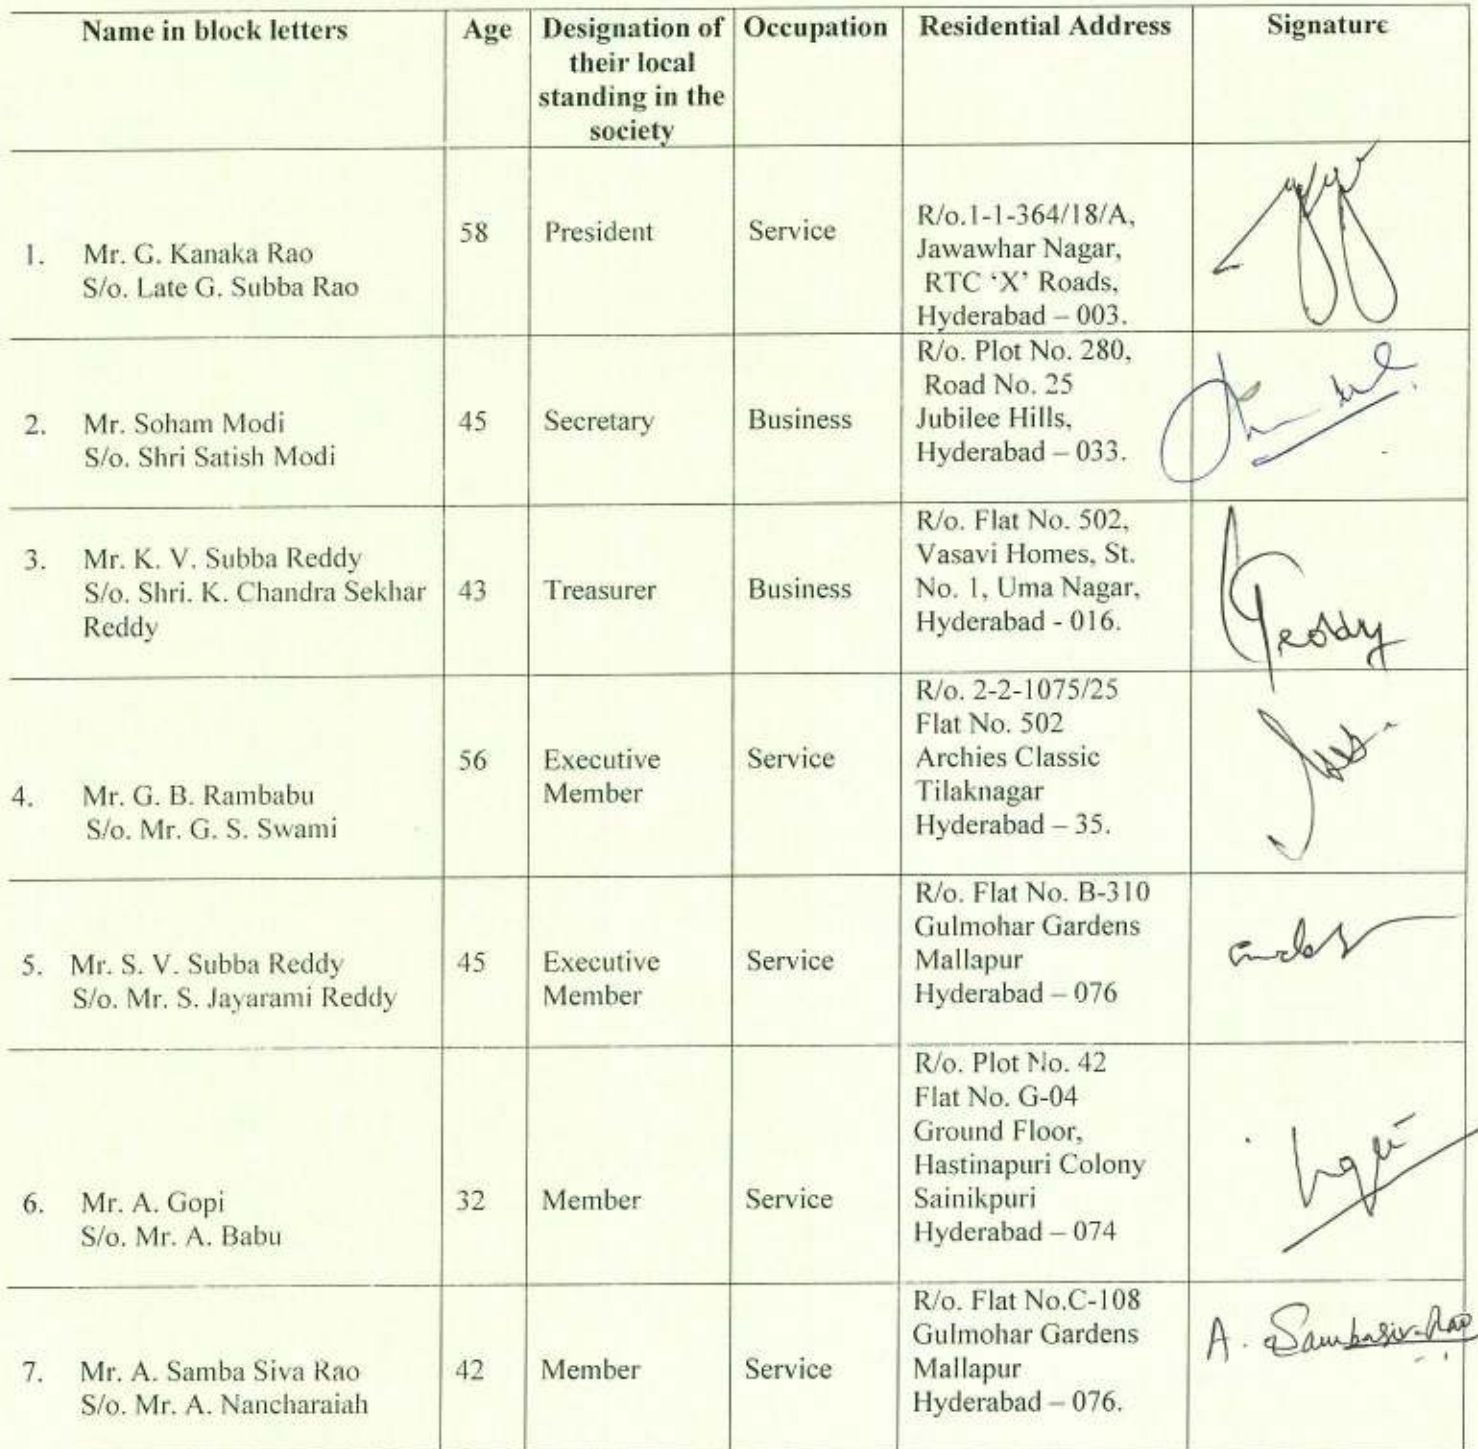 Name in block letters
Age
Designation of
their local
standing in the
society
Occupation
Residential Address
Signature
1. Mr. G. Kanaka Rao
S/o. Late G. Subba Rao
58
President
Service
R/o.1-1-364/18/A,
Jawawhar Nagar,
RTC ‘X’ Roads,
Hyderabad – 003.
2. Mr. Soham Modi
S/o. Shri Satish Modi
45
Secretary
Business
R/o. Plot No. 280,
Road No. 25
Jubilee Hills,
Hyderabad – 033.
3. Mr. K. V. Subba Reddy
S/o. Shri. K. Chandra Sekhar
Reddy
43
Treasurer
Business
R/o. Flat No. 502,
Vasavi Homes, St.
No. 1, Uma Nagar,
Hyderabad - 016.
4. Mr. G. B. Rambabu
S/o. Mr. G. S. Swami
56
Executive
Member
Service
R/o. 2-2-1075/25
Flat No. 502
Archies Classic
Tilaknagar
Hyderabad – 35.
5. Mr. S. V. Subba Reddy
S/o. Mr. S. Jayarami Reddy
45
Executive
Member
Service
R/o. Flat No. B-310
Gulmohar Gardens
Mallapur
Hyderabad – 076
6. Mr. A. Gopi
S/o. Mr. A. Babu
32
Member
Service
R/o. Plot No. 42
Flat No. G-04
Ground Floor,
Hastinapuri Colony
Sainikpuri
Hyderabad – 074
7. Mr. A. Samba Siva Rao
S/o. Mr. A. Nancharaiah
42
Member
Service
R/o. Flat No.C-108
Gulmohar Gardens
Mallapur
Hyderabad – 076.
A. Sambasiva Rao